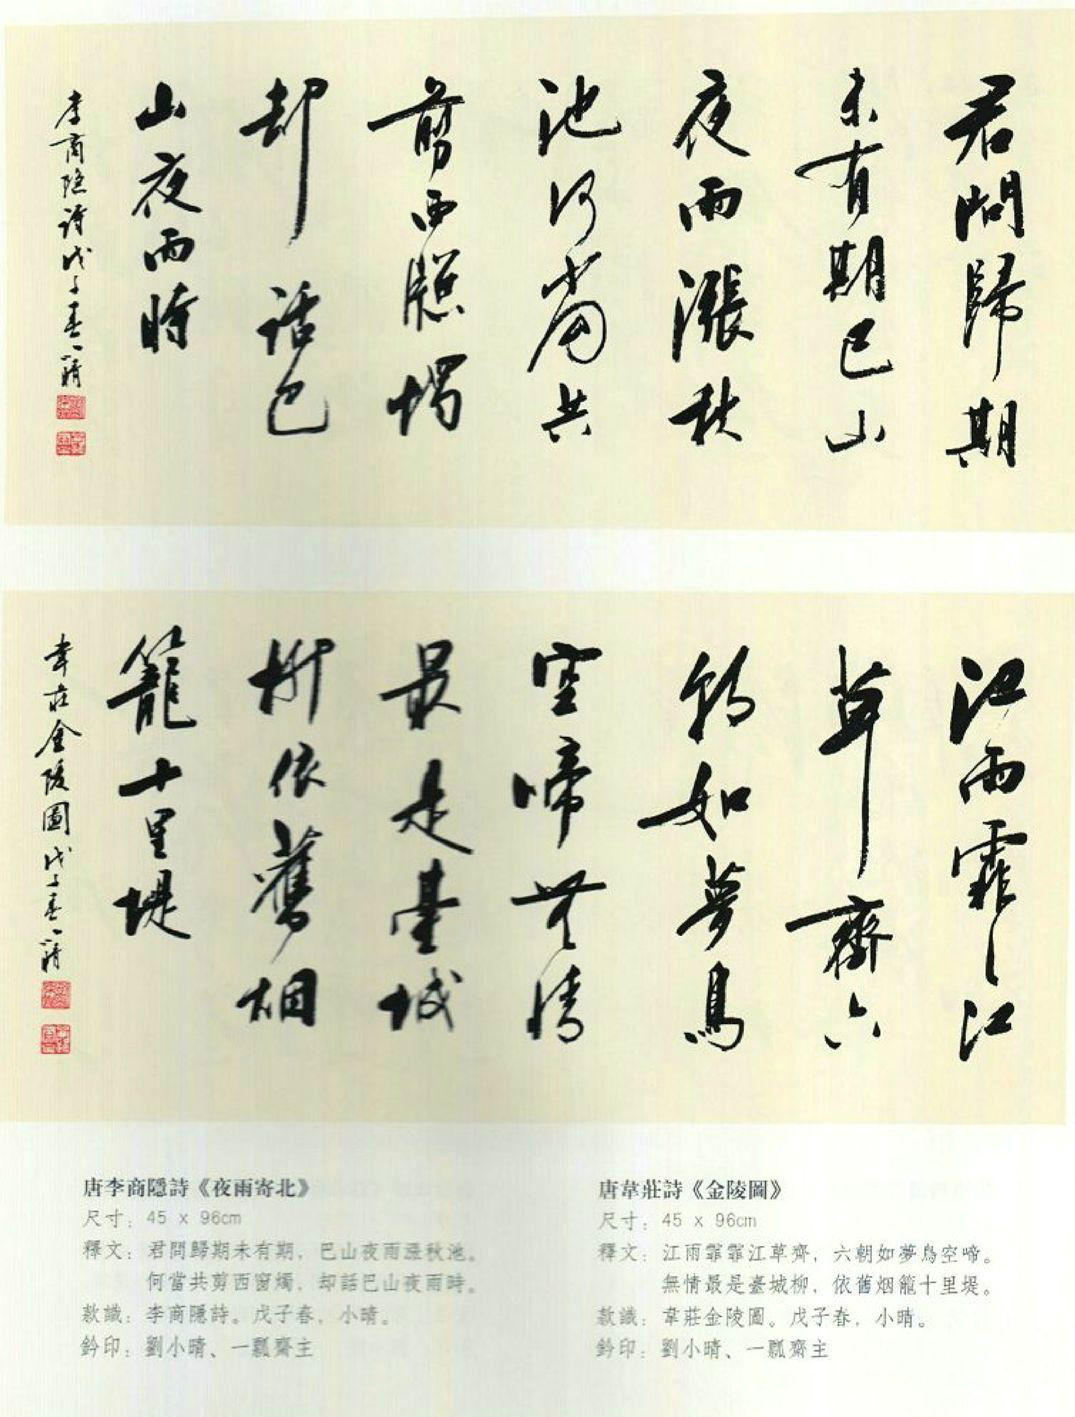 君問歸期
未有期巴山
夜雨漲秋
池何當共
剪西牕燭
却話巴
山夜雨時
李商隐詩戊子春小晴
江雨霏々江
草齊六
朝如夢鳥
空啼無情
最是臺城
柳依舊烟
籠十里堤
韋莊金陵圖戊子春小晴
唐李商隱詩《夜雨寄北》
尺寸：45 x 96cm
釋文：君問歸期未有期，巴山夜雨漲秋池。
何當共剪西窗燭，却話巴山夜雨時。
款識：李商隱詩。戊子春，小晴。
鈐印：劉小晴、一瓢齋主
唐韋莊詩《金陵圖》
尺寸：45 x 96cm
釋文：江雨霏霏江草齊，六朝如夢鳥空啼。
無情最是臺城柳，依舊烟籠十里堤。
款識：韋莊金陵圖。戊子春，小晴。
鈐印：劉小晴、一瓢齋主